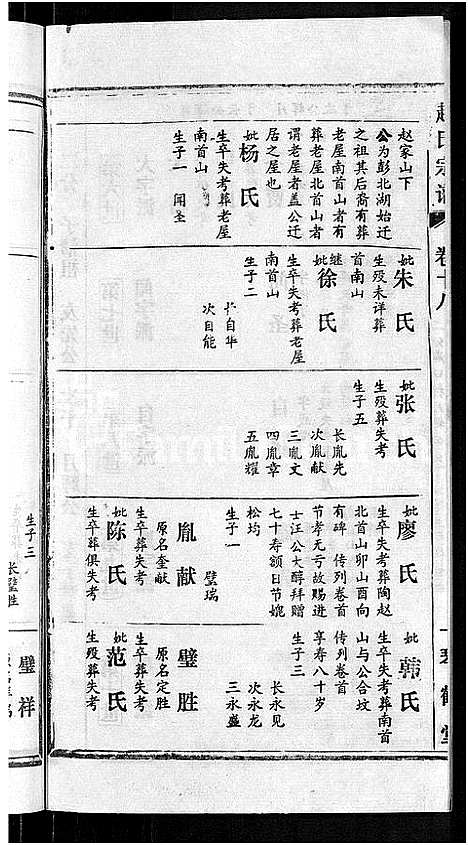 赵氏宗谱
卷十八
赵家山下
公为彭北湖始迁
之祖其后裔有葬
老屋南首山者有
葬老屋北首山者
谓老屋者盖公迁
居之屋也
妣杨氏
生卒失考葬老屋
南首山
生子一 闻圣
妣朱氏
生殁未详葬
首南山
继妣徐氏
生卒失考葬老屋
南首山
生子二
长自华
次自能
妣张氏
生殁葬失考
生子五
长胤先
次胤献
三胤文
四胤章
五胤耀
妣廖氏
生卒失考葬陶赵
北首山卯山酉向
有碑 传列卷首
节孝无亏故赐进
士汪公大醇拜赠
七十寿额日节媲
松均
生子一
璧瑞
胤献
原名奎献
生卒葬失考
妣陈氏
生卒葬俱失考
妣韩氏
生卒失考葬南首
山与公合坟
传列卷首
享寿八十岁
生子三
长永见
次永龙
三永盛
璧胜
原名定胜
生卒葬失考
妣范氏
生殁葬失考
堂
生子三
长璧胜
璧祥